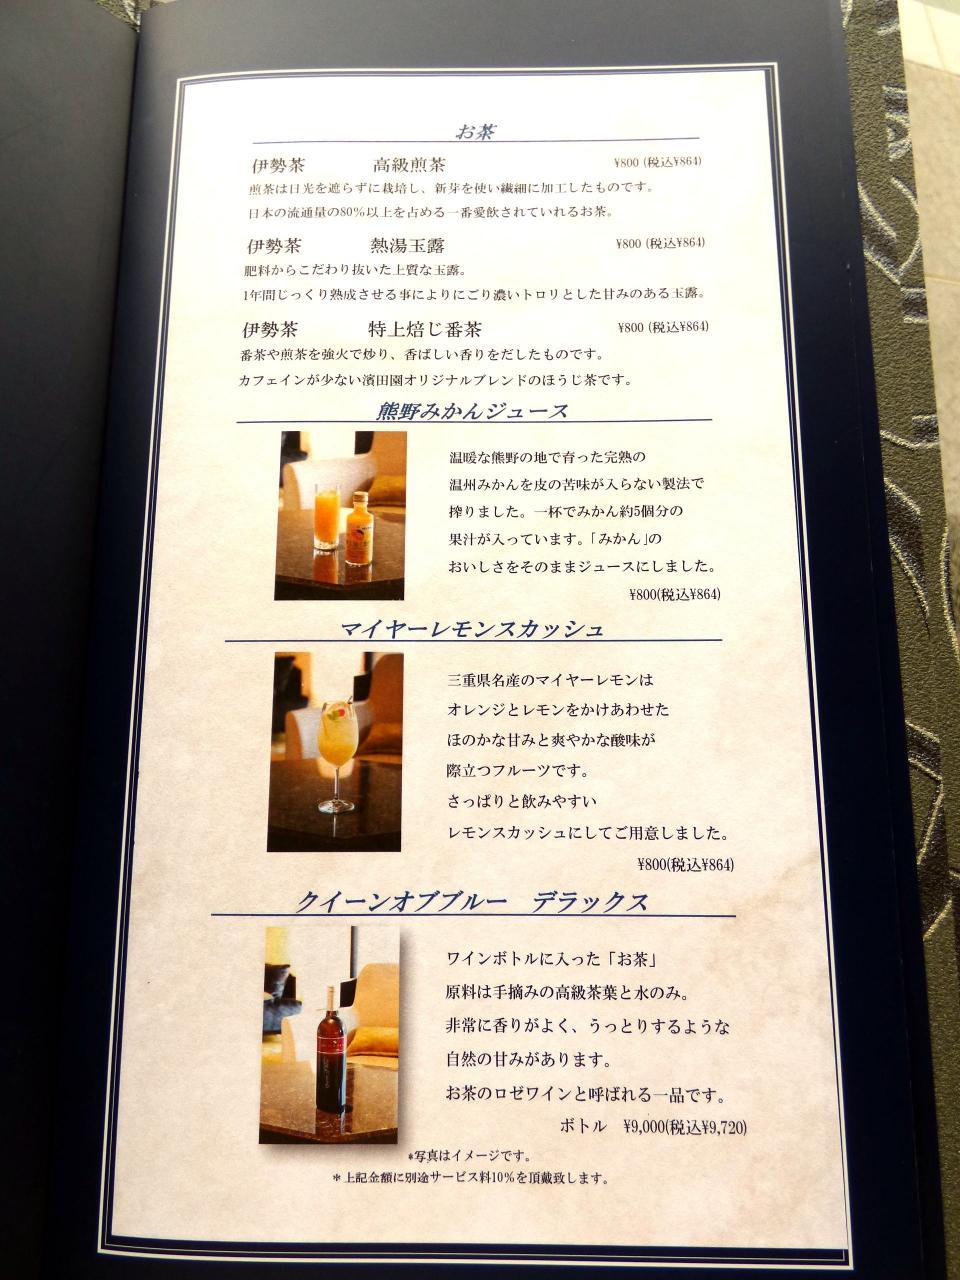 お茶
伊勢茶 高級煎茶 ¥800 (税込¥864)
煎茶は日光を遮らずに栽培し、新芽を使い繊細に加工したものです。
日本の流通量の80%以上を占める一番愛飲されていれるお茶。
伊勢茶 熱湯玉露 ¥800 (税込¥864)
肥料からこだわり抜いた上質な玉露。
1年間じっくり熟成させる事によりにごり濃いトロリとした甘みのある玉露。
伊勢茶 特上焙じ番茶 ¥800 (税込¥864)
番茶や煎茶を強火で炒り、香ばしい香りをだしたものです。
カフェインが少ない濱田園オリジナルブレンドのほうじ茶です。
熊野みかんジュース
温暖な熊野の地で育った完熟の
温州みかんを皮の苦味が入らない製法で
搾りました。一杯でみかん約5個分の
果汁が入っています。「みかん」の
おいしさをそのままジュースにしました。
¥800(税込¥864)
マイヤーレモンスカッシュ
三重県名産のマイヤーレモンは
オレンジとレモンをかけあわせた
ほのかな甘みと爽やかな酸味が
際立つフルーツです。
さっぱりと飲みやすい
レモンスカッシュにしてご用意しました。
¥800(税込¥864)
クイーンオブブルー デラックス
ワインボトルに入った「お茶」
原料は手摘みの高級茶葉と水のみ。
非常に香りがよく、うっとりするような
自然の甘みがあります。
お茶のロゼワインと呼ばれる一品です。
ボトル ¥9,000(税込¥9,720)
*写真はイメージです。
＊上記金額に別途サービス料10%を頂戴致します。